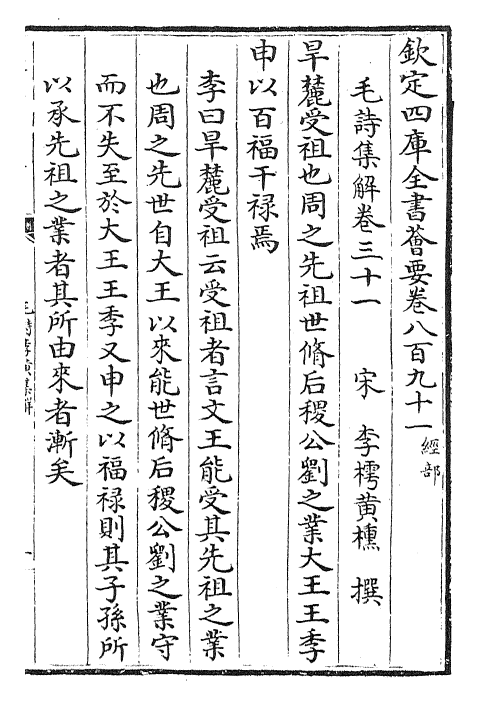 欽定四庫全書薈要卷八百九十一 經部
毛詩集解卷三十一 宋 李樗黄櫄 撰
旱麓受祖也周之先祖世脩后稷公劉之業大王王季
申以百福干禄焉
李曰旱麓受祖云受祖者言文王能受其先祖之業
也周之先世自大王以來能世脩后稷公劉之業守
而不失至於大王王季又申之以福禄則其子孫所
以承先祖之業者其所由來者漸矣
毛詩李黄集解
一